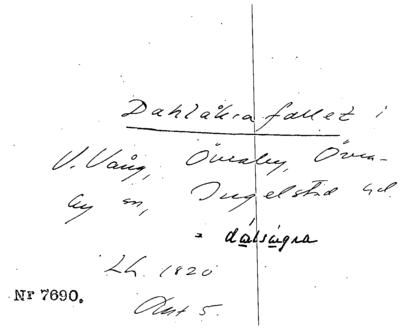 Dahlåkra fallet i
V. Vång, Överaby, Övra-
by sn, Ingelstad hd.
" dalsågra
Lh. 1820
Nr 7690.
Akt 5.